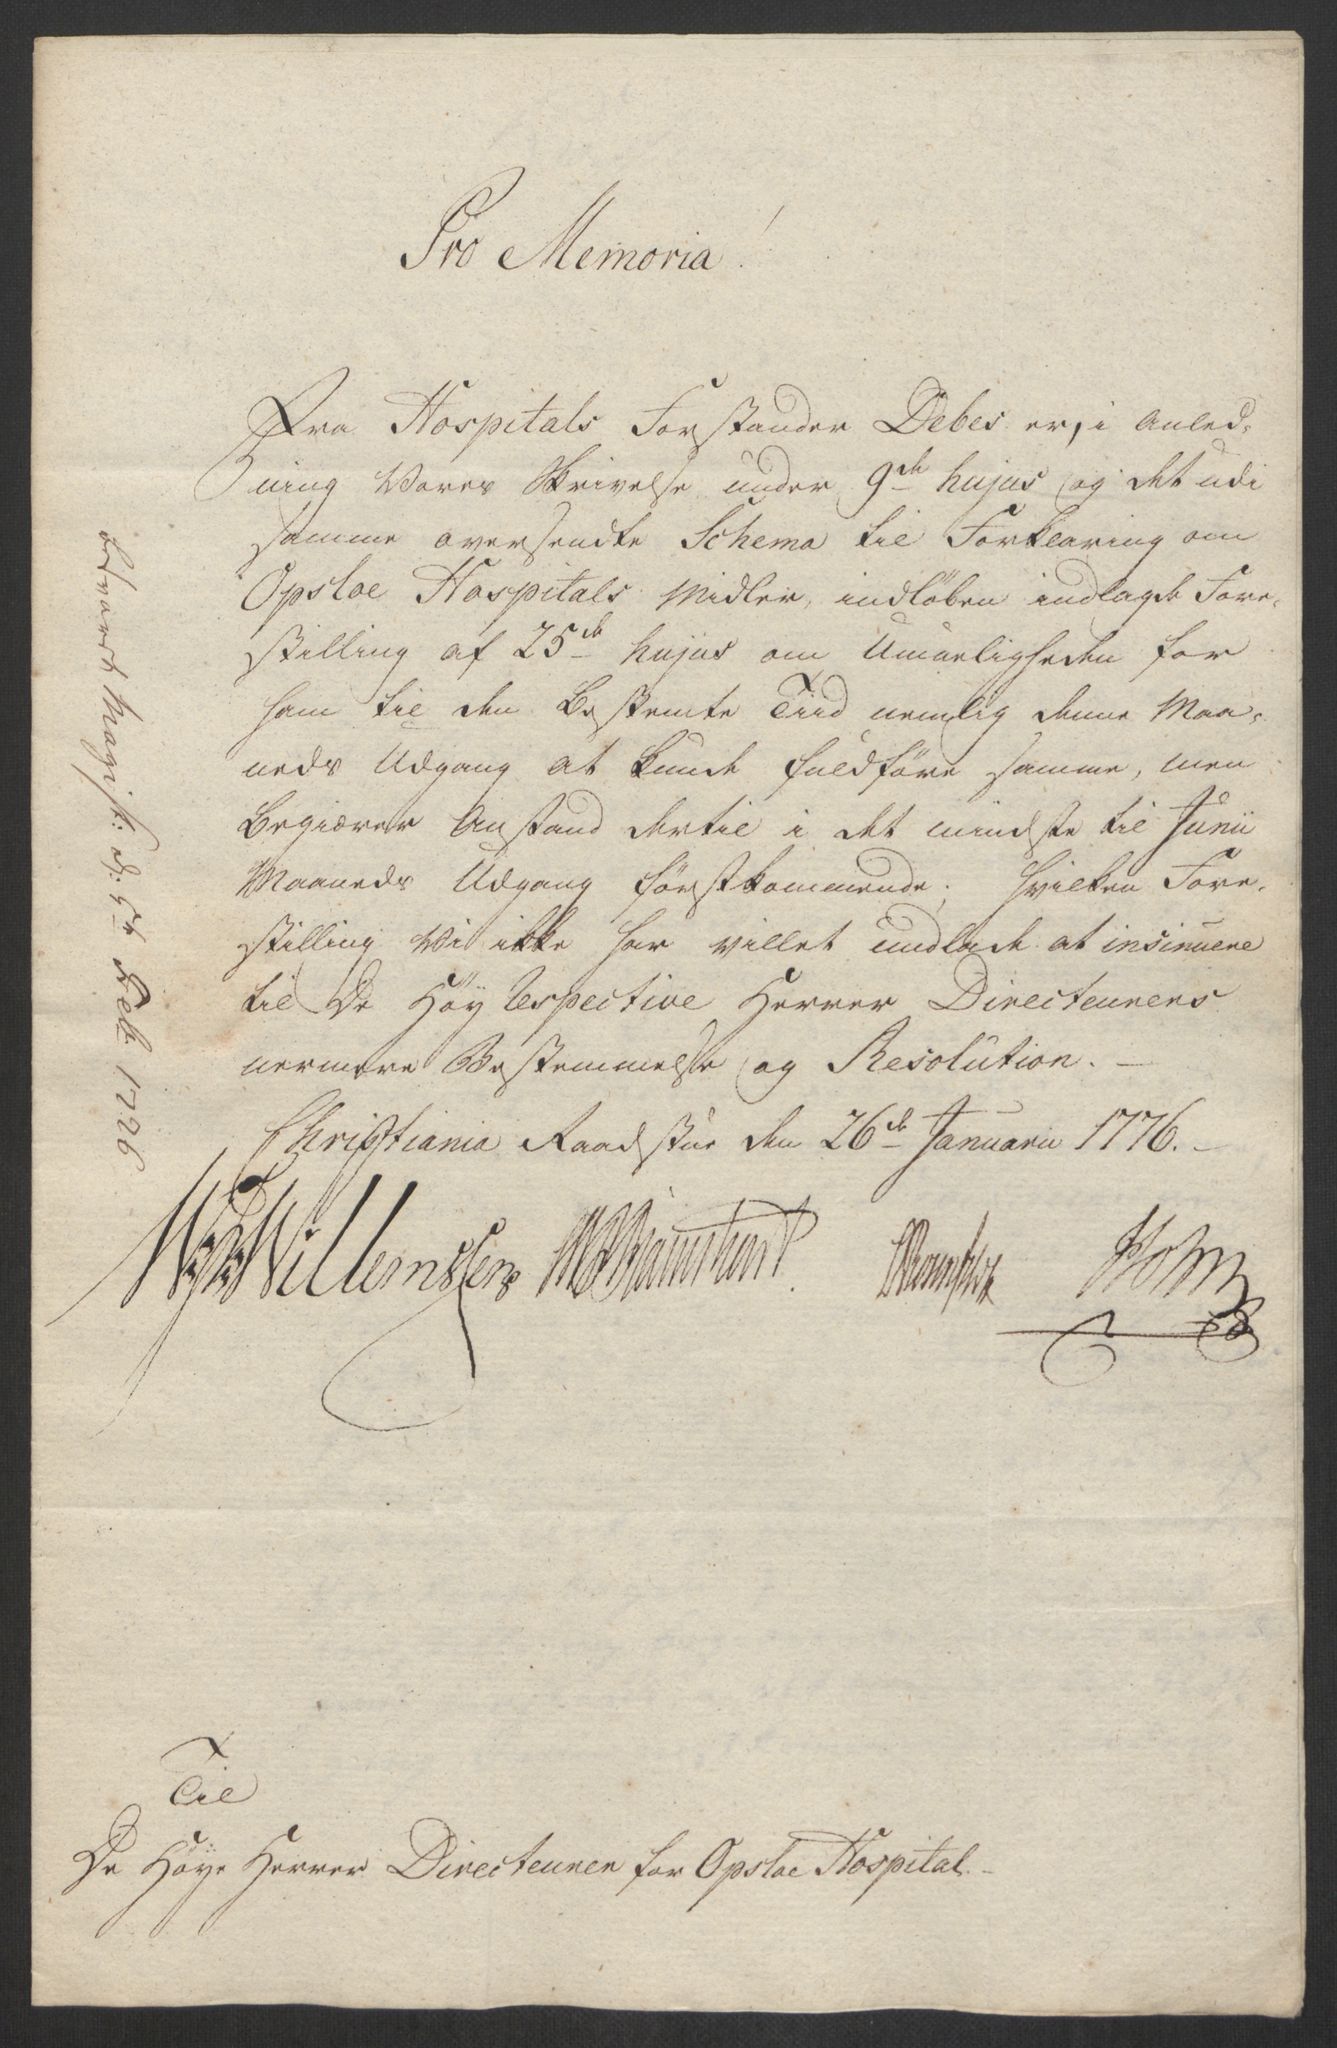 Pro Memoria!
Fra Hospitals Forstander Debes er, i Anled-
ning Vores Skrivelse under 9de hujus og det udi
samme oversendte Schema til Forklaring om
Opsloe Hospitals Midler, indløben indlagde Fore-
stilling af 25de hujus om Umueligheden for
ham til den Bestemte Tiid nemlig denne Maa-
neds Udgang at kunde fuldføre samme, men
Begiærer Anstand dertil i det mindste til Junii
Maaneds Udgang førstkommende; hvilken Fore-
stilling Vi ikke har villet undlade at insinuere
til De Høy Respective Herrer Directeurers
nermere Bestemmelse og Resolution. -
Christiania Raadstue den 26de Januarii 1776. -
Willemssen Holm
Magist: d: Feb. 1776
Til
De Høye Herrer Directeurer for Opsloe Hospital. -